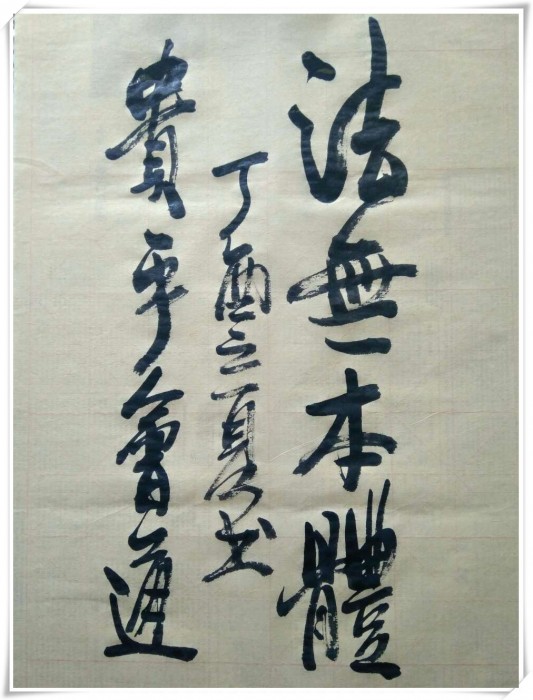 法無一本體
丁酉之夏書
貴乎會通